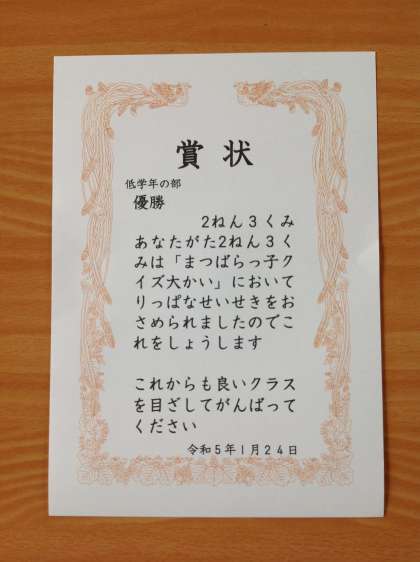 賞状
低学年の部
優勝
2ねん3くみ
あなたがた2ねん3く
みは「まつばらっ子ク
イズ大かい」において
りっぱなせいせきをお
さめられましたのでこ
れをしょうします
これからも良いクラス
を目ざしてがんばって
ください
令和5年1月24日